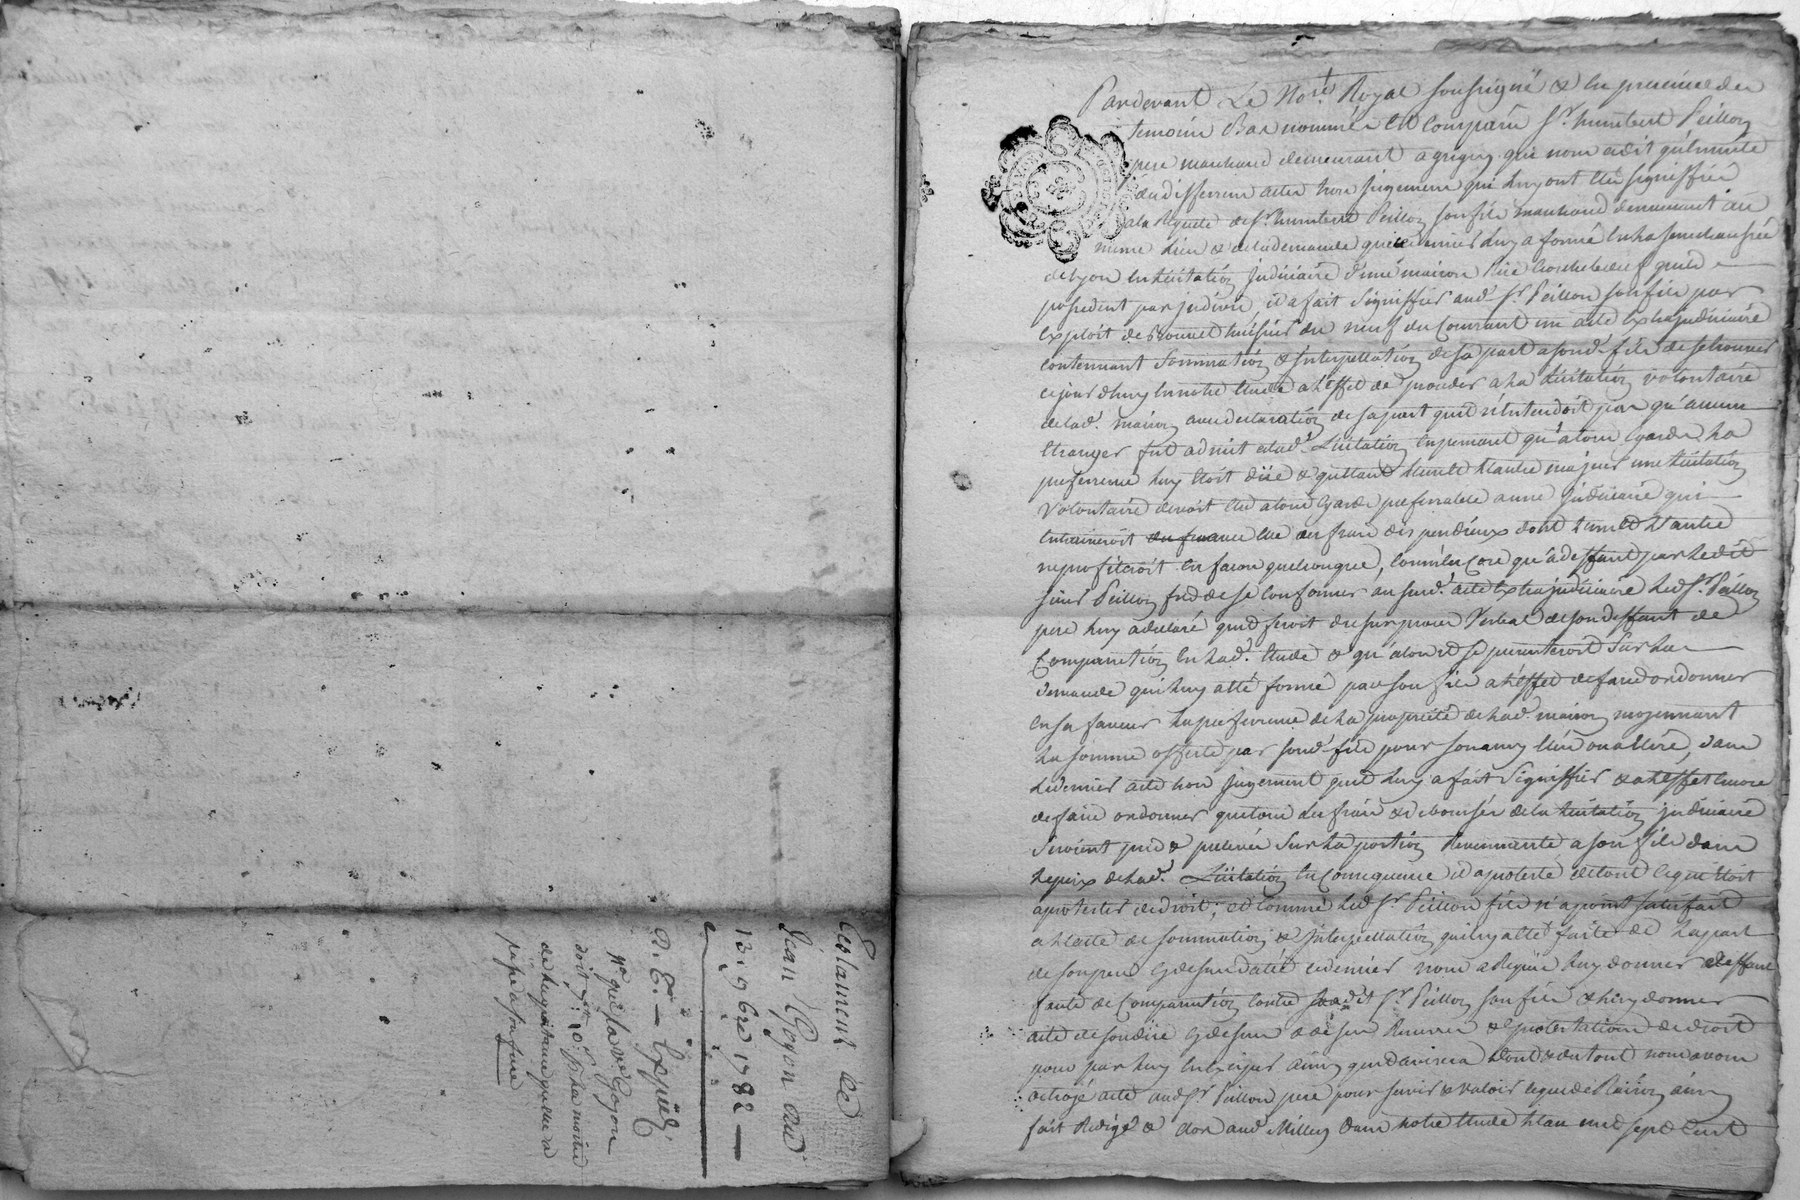 Testament de
Jean Goyon du
13. 9bre 1782
R. E. — Expédié
Nª que la ve. Goyon
doit
de la quittance passée a
Pardevant Le Nore. Royal soussigné & En presence des
temoins Bas nommés Est Comparu Sr. humbert Peillon
pere marchand demeurant a grigny qui nous a dit qu'ensuite
des differens actes hors Jugement qui luy ont été signiffiés
ala Requete de Sr. humbert Peillon son fils marchand demeurant au
meme Lieu & de la demande que ce dernier luy a formé En La senechaussée
de Lyon En licitation Judiciaire d'une maison quils
possedent par Indivis il a fait Signiffier aud. Sr. Peillon son fils par
Exploit de huissier du neuf du Courant un acte Extrajudiciaire
contennant Sommation & Interpellation de sa part a sond. fils de se trouver
cejourdhuy En notre Etude a L'effet de proceder a La Licitation volontaire
de lad. maison avec declaration de sa part quil n'Entendoit pas qu'aucun
Etranger fut admit a lad. Licitation En pensant qu'a tous Egards La
preference luy Etoit düe & qu'ettant L'un & L'autre majeurs une Licitation
Volontaire devoit Etre a tous Egards preferable a une Judiciaire qui
Entraineroit des frais dispendieux dont L'un et L'autre
ne profiteroit En facon quelconque, Comme Encore qu'a deffaut par Ledit
sieur Peillon fils de se Conformer au susd. acte Extrajudiciaire Led. Sr. Peillon
pere luy a declaré quil seroit dressé proces Verbal de son deffaut de
Comparution En lad. Etude & qu'alors il se presenteroit Sur La
demande qui luy a été formée par son fils a L'effet de faire ordonner
En sa faveur La preference de La propriété de lad. maison moyennant
La somme offerte par sond. fils pour son amy Elu ou a Elire, dans
Le dernier acte hors Jugement quil luy a fait Signiffier & a L'effet Encore
de faire ordonner que tous les frais de bourses de la Licitation judiciaire
Seroient pris & prelevés Sur La portion Revennante a son fils dans
Le prix de lad. Licitation En Consequence il a protesté de tout ce qui Etoit
a protester de droit; et Comme Led. Sr. Peillon fils n'a point satisfait
a L'acte de Sommation & Interpellation qui luy a été faite de La part
de son pere Cy dessus datté ce dernier nous a Requis luy donner deffaut
faute de Comparution Contre Sr. Peillon son fils & luy donner
acte de son dire Cy dessus & de ses Reserves & protestations de droit
pour par luy En Exciper ainsy quil avisera Dont & du tout nous avons
octroyé acte aud. Sr. Peillon pere pour servir & valoir ce que de Raison ainsy
fait Redigé & Clos aud. Millery Dans notre Etude L'an mil sept Cent